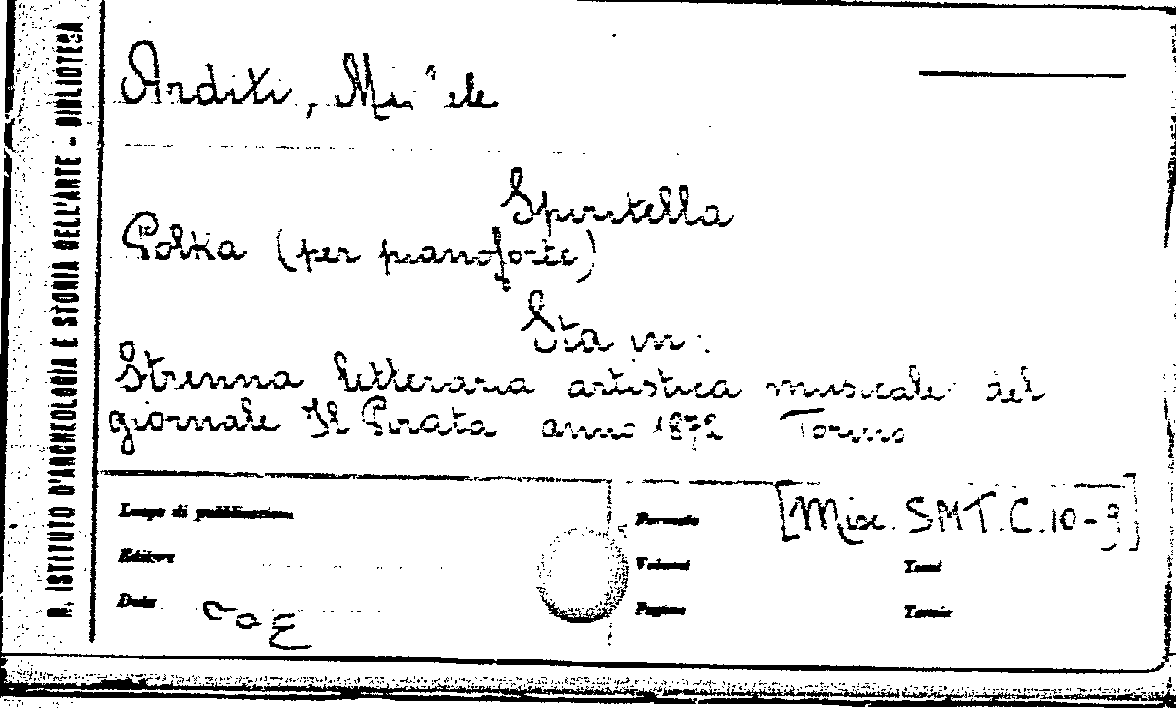 R. ISTITUTO D'ARCHEOLOGIA E STORIA DELL'ARTE - BIBLIOTECA
Arditi,
Spiritella
Polka (per pianoforte)
Sta in:
Strenna letteraria artistica musicale del
giornale Il Pirata anno 1872 Torino
Luogo di pubblicazione
Editore
Data
Formato
[Misc. SMT.C.10-9]
Volumi
Tomi
Pagine
Tavole